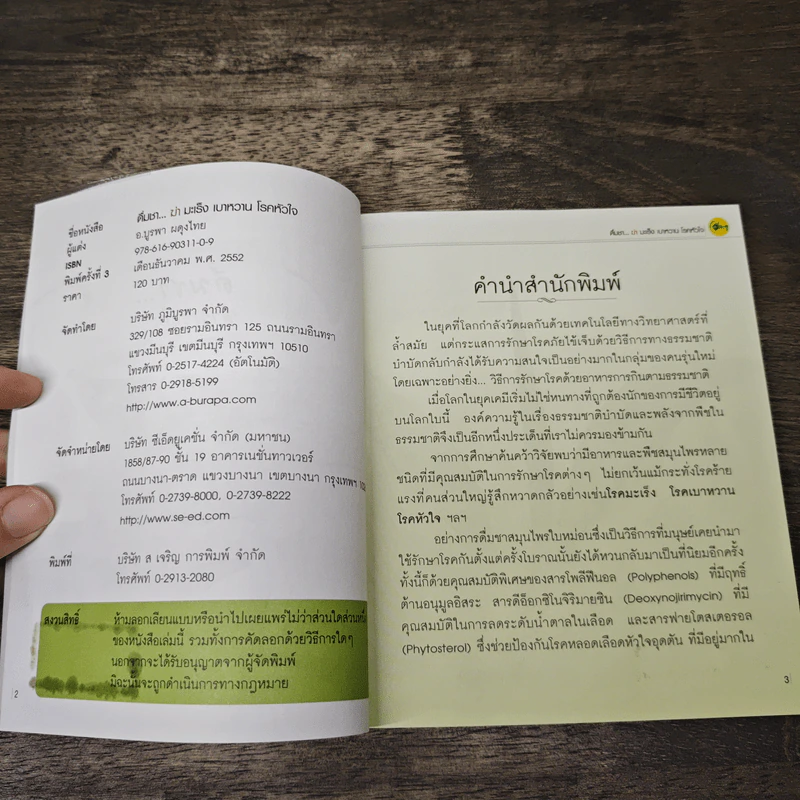 ชื่อหนังสือ ดื่มชา... ฆ่า มะเร็ง เบาหวาน โรคหัวใจ
ผู้แต่ง อ.บูรพา ผดุงไทย
ISBN 978-616-90311-0-9
พิมพ์ครั้งที่ 3 เดือนธันวาคม พ.ศ. 2552
ราคา 120 บาท
จัดทำโดย บริษัท ภูมิบูรพา จำกัด
329/108 ซอยรามอินทรา 125 ถนนรามอินทรา
แขวงมีนบุรี เขตมีนบุรี กรุงเทพฯ 10510
โทรศัพท์ 0-2517-4224 (อัตโนมัติ)
โทรสาร 0-2918-5199
http://www.a-burapa.com
จัดจำหน่ายโดย บริษัท ซีเอ็ดยูเคชั่น จำกัด (มหาชน)
1858/87-90 ชั้น 19 อาคารเนชั่นทาวเวอร์
ถนนบางนา-ตราด แขวงบางนา เขตบางนา กรุงเทพฯ
โทรศัพท์ 0-2739-8000, 0-2739-8222
http://www.se-ed.com
พิมพ์ที่ บริษัท ส เจริญ การพิมพ์ จำกัด
โทรศัพท์ 0-2913-2080
สงวนสิทธิ์ ห้ามลอกเลียนแบบหรือนำไปเผยแพร่ไม่ว่าส่วนใดส่วนหนึ่ง
ของหนังสือเล่มนี้ รวมทั้งการคัดลอกด้วยวิธีการใดๆ
นอกจากจะได้รับอนุญาตจากผู้จัดพิมพ์
มิฉะนั้นจะถูกดำเนินการทางกฎหมาย
2
ดื่มชา... ฆ่า มะเร็ง เบาหวาน โรคหัวใจ
คำนำสำนักพิมพ์
ในยุคที่โลกกำลังวัดผลกันด้วยเทคโนโลยีทางวิทยาศาสตร์ที่
ล้ำสมัย แต่กระแสการรักษาโรคภัยไข้เจ็บด้วยวิธีการทางธรรมชาติ
บำบัดกลับกำลังได้รับความสนใจเป็นอย่างมากในกลุ่มของคนรุ่นใหม่
โดยเฉพาะอย่างยิ่ง... วิธีการรักษาโรคด้วยอาหารการกินตามธรรมชาติ
เมื่อโลกในยุคเคมีเริ่มไม่ใช่หนทางที่ถูกต้องนักของการมีชีวิตอยู่
บนโลกใบนี้ องค์ความรู้ในเรื่องธรรมชาติบำบัดและพลังจากพืชใน
ธรรมชาติจึงเป็นอีกหนึ่งประเด็นที่เราไม่ควรมองข้ามกัน
จากการศึกษาค้นคว้าวิจัยพบว่ามีอาหารและพืชสมุนไพรหลาย
ชนิดที่มีคุณสมบัติในการรักษาโรคต่างๆ ไม่ยกเว้นแม้กระทั่งโรคร้าย
แรงที่คนส่วนใหญ่รู้สึกหวาดกลัวอย่างเช่นโรคมะเร็ง โรคเบาหวาน
โรคหัวใจ ฯลฯ
อย่างการดื่มชาสมุนไพรใบหม่อนซึ่งเป็นวิธีการที่มนุษย์เคยนำมา
ใช้รักษาโรคกันตั้งแต่ครั้งโบราณนั้นยังได้หวนกลับมาเป็นที่นิยมอีกครั้ง
ทั้งนี้ก็ด้วยคุณสมบัติพิเศษของสารโพลีฟีนอล (Polyphenols) ที่มีฤทธิ์
ต้านอนุมูลอิสระ สารดีอ็อกซีโนจิริมายซิน (Deoxynojirimycin) ที่มี
คุณสมบัติในการลดระดับน้ำตาลในเลือด และสารฟายโตสเตอรอล
(Phytosterol) ซึ่งช่วยป้องกันโรคหลอดเลือดหัวใจอุดตัน ที่มีอยู่มากใน
3